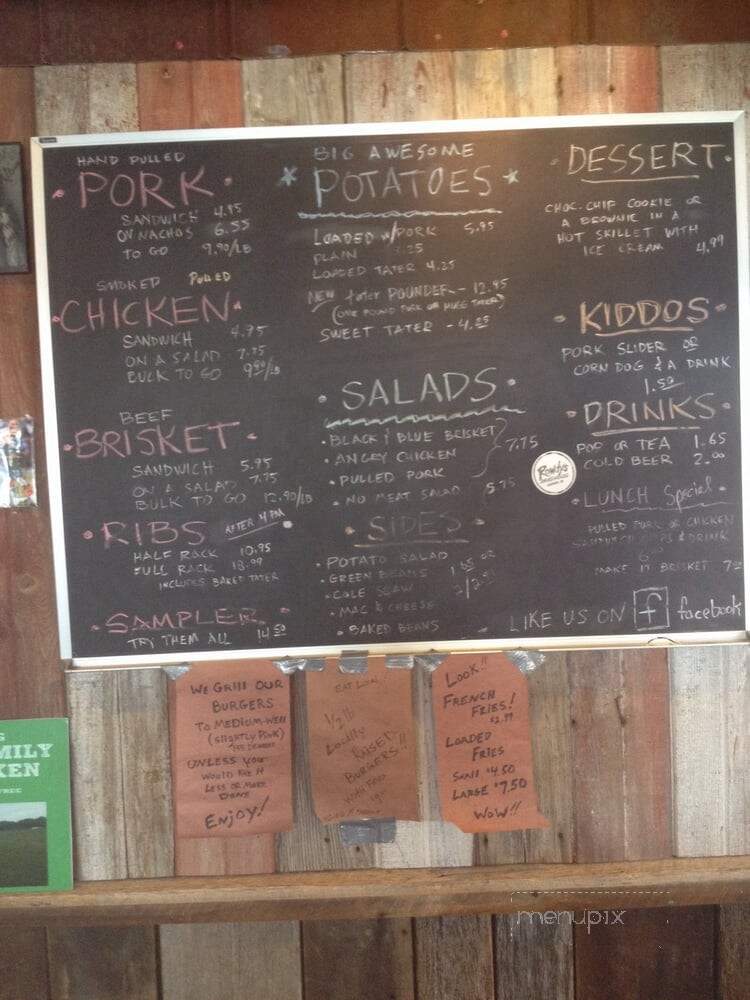 HAND PULLED
PORK
SANDWICH 4.95
ON NACHOS 6.55
TO GO 9.90/LB
SMOKED PULLED
CHICKEN
SANDWICH 4.95
ON A SALAD 7.75
BULK TO GO 9.90/LB
BEEF
BRISKET
SANDWICH 5.95
ON A SALAD 7.75
BULK TO GO 12.90/LB
RIBS AFTER 4 PM
HALF RACK 10.95
FULL RACK 18.99
INCLUDES BAKED TATER
SAMPLER
TRY THEM ALL 14.50
BIG AWESOME
POTATOES
LOADED W/PORK 5.95
PLAIN
LOADED TATER 4.25
NEW tater POUNDER - 12.95
(ONE POUND PORK ON HUGE TATER)
SWEET TATER - 4.25
SALADS
BLACK & BLUE BRISKET
ANGRY CHICKEN 7.75
PULLED PORK
NO MEAT SALAD 5.75
SIDES
POTATO SALAD
GREEN BEANS 1.65 OR
COLE SLAW
MAC & CHEESE
BAKED BEANS
DESSERT
CHOC. CHIP COOKIE OR
A BROWNIE IN A
HOT SKILLET WITH
ICE CREAM 4.99
KIDDOS
PORK SLIDER OR
CORN DOG & A DRINK
1.50
DRINKS
POP OR TEA 1.65
COLD BEER 2.00
Rowdy's
LUNCH Special
PULLED PORK OR CHICKEN
SANDWICH CHIPS & DRINK
MAKE IT BRISKET
LIKE US ON f facebook
WE GRILL OUR
BURGERS
TO MEDIUM-WELL
(SLIGHTLY PINK)
UNLESS YOU
WOULD LIKE IT
LESS OR MORE
DONE
ENJOY!
EAT LOCAL
1/2 lb
Locally
RAISED
BURGERS!!
LOOK!!
FRENCH
FRIES!
$2.99
LOADED
FRIES
SMALL $4.50
LARGE $7.50
WOW!!
MILY
KEN
menupix